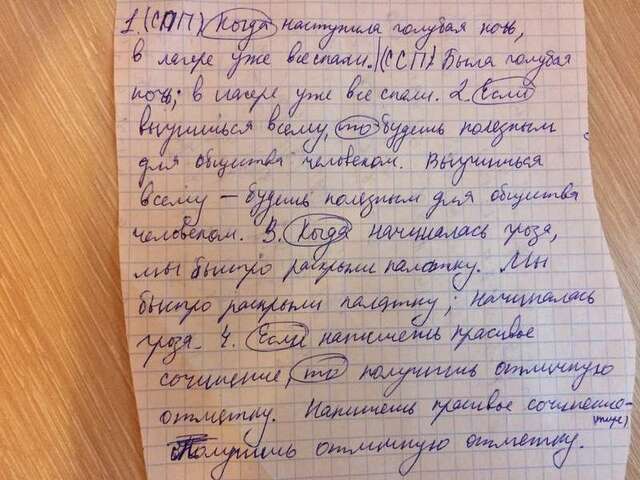 1. (СПП) Когда наступила голубая ночь,
в лагере уже все спали. (ССП) Была голубая
ночь; в лагере уже все спали. 2. Если
выучишься всему, то будешь полезным
для общества человеком. Выучишься
всему — будешь полезным для общества
человеком. 3. Когда начиналась гроза,
мы быстро раскрыли палатку. Мы
быстро раскрыли палатку; начиналась
гроза. 4. Если напишешь красивое
сочинение, то получишь отличную
отметку. Напишешь красивое сочинение-
(тире)
получишь отличную отметку.